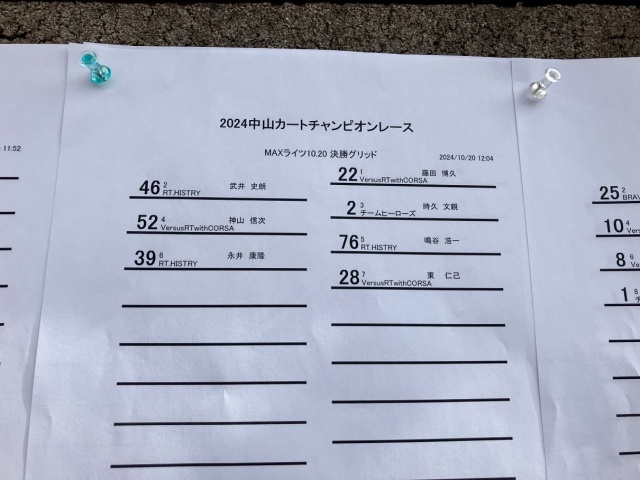 2024中山カートチャンピオンレース
MAXライツ10.20 決勝グリッド
2024/10/20 12:04
22 1 藤田 博久
VersusRTwithCORSA
46 2 武井 史朗
RT.HISTRY
2 3 時久 文親
チームヒーローズ
52 4 神山 信次
VersusRTwithCORSA
76 5 鳴谷 浩一
RT.HISTRY
39 6 永井 康隆
RT.HISTRY
28 7 東 仁己
VersusRTwithCORSA
11:52
25 2
BRAV
10 4
Vers
8 6
Ve
1 8